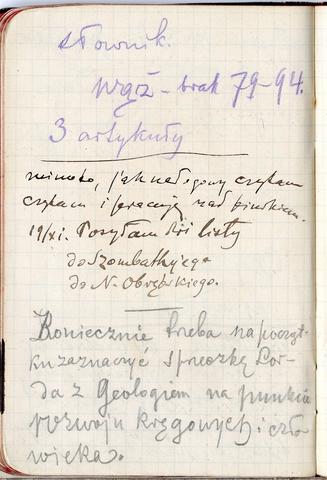 słownik.
wąż - brak 79-94.
3 artykuły
mimoto, czytam
czytam i pracuję nad
19/XI. Posyłam dziś listy
do Szombathy'ego
do N. Obrębskiego.
Koniecznie trzeba na począt-
ku zaznaczyć sprzeczkę Lor-
da z Geologiem na punkcie
rozwoju kręgowych i czło-
wieka.